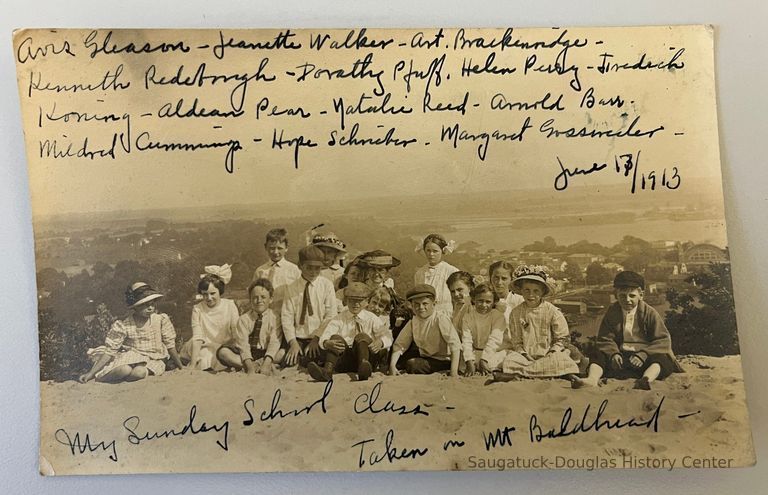 Avis Gleason - Jeanette Walker - Art. Brackenridge -
Kenneth Redebough - Dorathy Pfaff. Helen Perry - Fredrich
Koning - Aldean Pear - Natalie Reed - Arnold Barr.
Mildred Cummings - Hope Schrieber. Margaret Grossweiler -
June 17/1913
My Sunday School Class -
Taken on Mt Baldhead -
Saugatuck-Douglas History Center